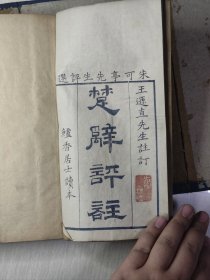 朱可亭先生評選
王遯直先生註訂
楚辭評註
繼香居士讀本